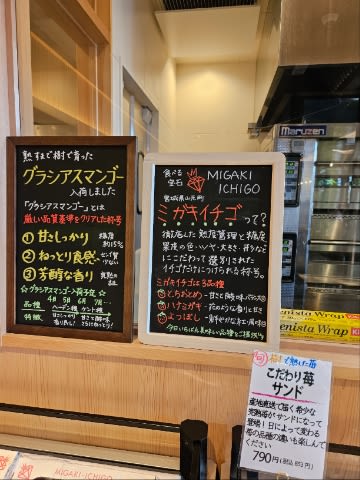 熟すまで樹で育った
グラシアスマンゴー
入荷しました
「グラシアスマンゴー」とは
厳しい品質基準をクリアした称号
① 甘さしっかり 糖度約15%
② ねっとり食感 せんい質少ない
③ 芳醇な香り
☆グラシアスマンゴー入荷予定☆
4月 5月 6月 7月…
品種
特徴
食べる宝石
MIGAKI
ICHIGO
宮城県山元町
ミガキイチゴって?
徹底した熟度管理と糖度
果皮の色・ハリ・ツヤ・大きさ・形など
にこだわって選別された
イチゴだけにつけられる称号。
ミガキイチゴは3品種
とちおとめ…甘さと酸味のバランス◎
ハナミガキ…花のような香りと甘さ
よつぼし…
Maruzen
enista Wrap
(旬)
こだわり苺
サンド
産地直送で届く希少な
完熟苺がサンドになって
登場!日によって変わる
苺の品種の違いも楽しんで
ください
790円(税込853円)
MIGAKI-ICHIGO